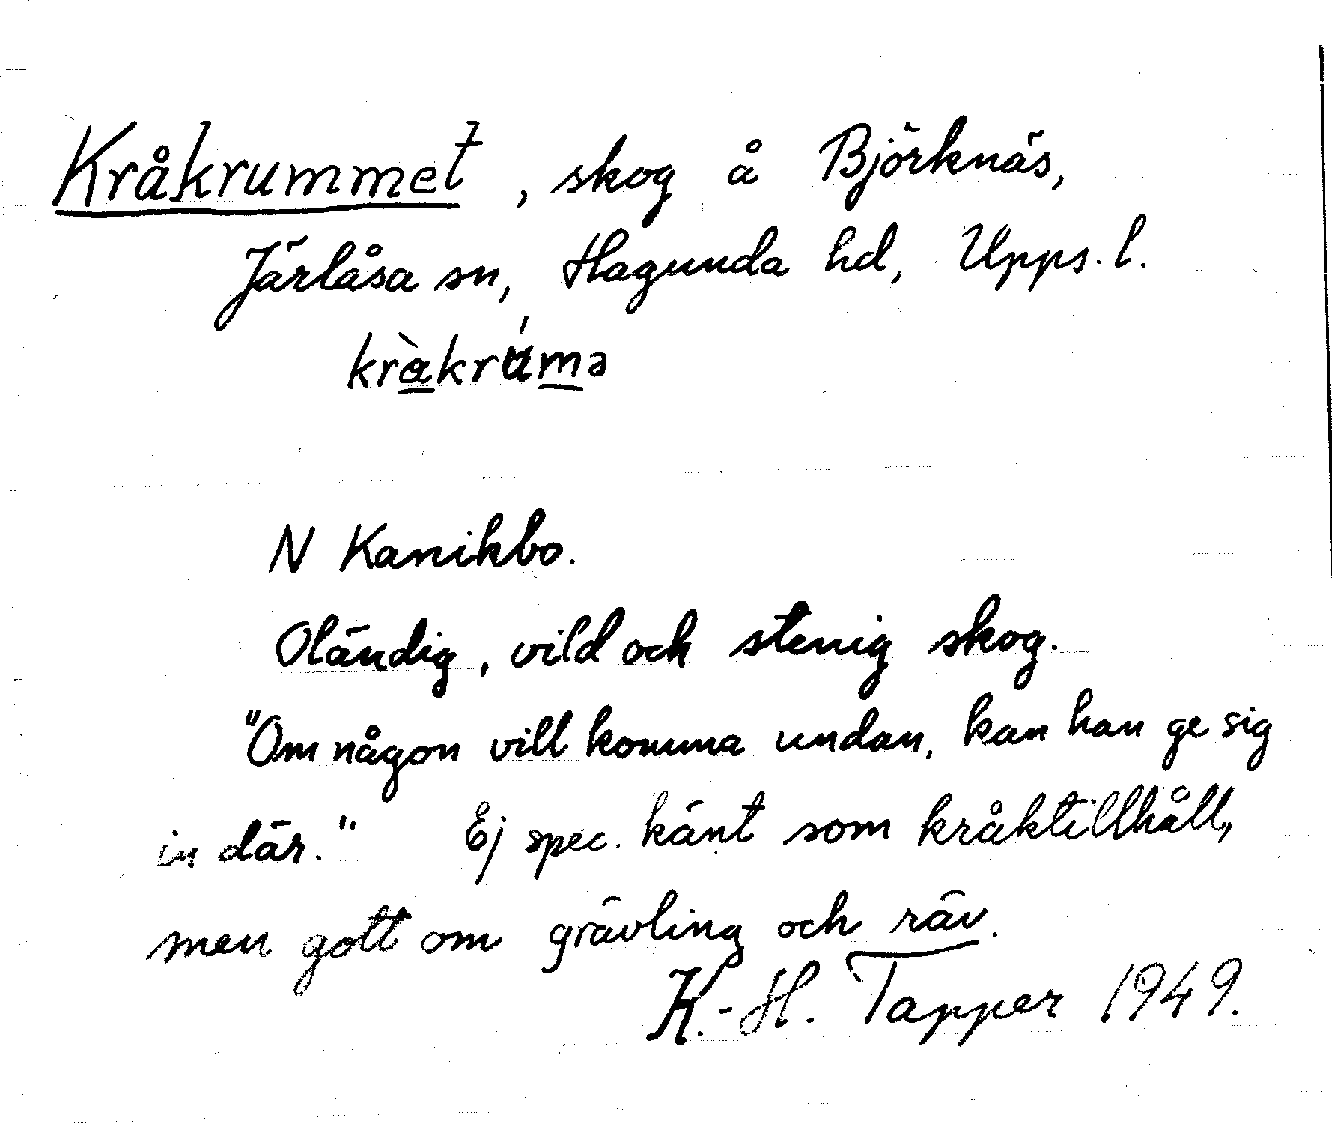 Kråkrummet, skog å Björknäs,
Järlåsa sn, Hagunda hd, Upps. l.
kràkrúmə
N Kanikbo.
Oländig, vild och stenig skog.
"Om någon vill komma undan, kan han ge sig
in där." Ej spec. känt som kråktillhåll,
men gott om grävling och räv.
K.-H. Tapper 1949.